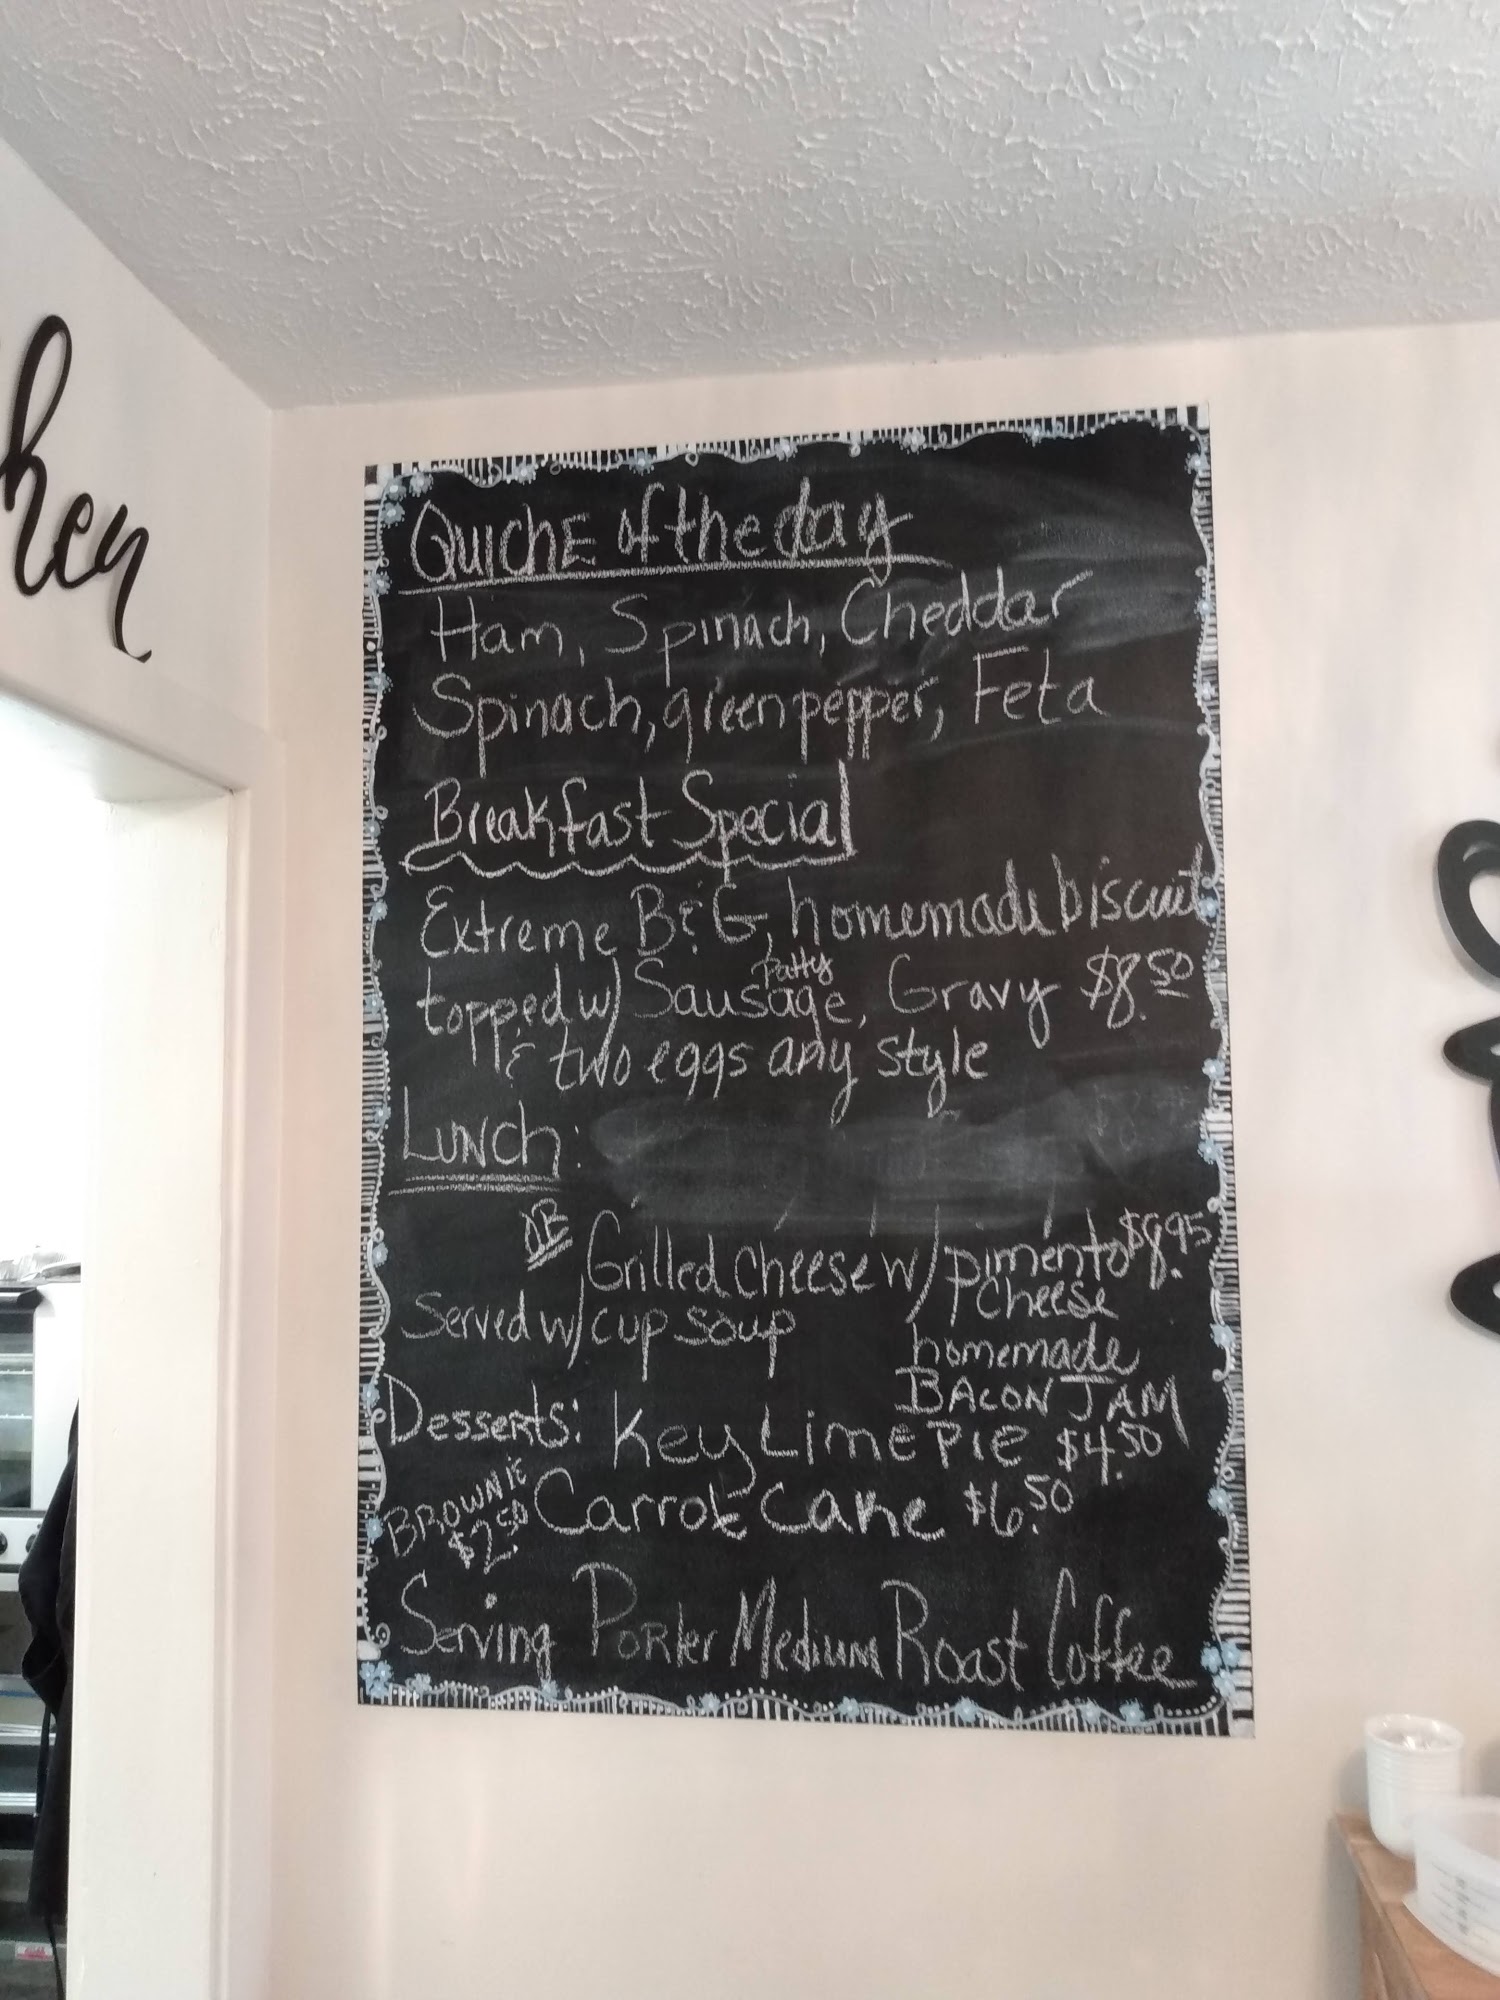 hen
QUICHE of the day
Ham, Spinach, Cheddar
Spinach, green pepper, Feta
Breakfast Special
Extreme B&G, homemade biscuit
topped w/ Sausage patty, Gravy $8.50
& two eggs any style
LUNCH:
Grilled Cheese w/ pimento $8.95
cheese
Served w/ cup soup
homemade
BACON JAM
Desserts: Key Lime Pie $4.50
BROWNIE
$2.50
Carrot Cake $6.50
Serving Porter Medium Roast Coffee